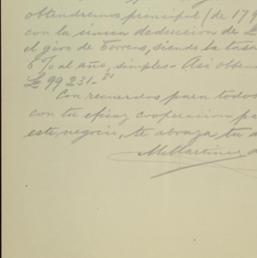 obtendremos principal (de 179
con la sinica deduccion de £
el giro de Torreros, siendo la tasa
6% al año, simple. Asi obten
£ 99 231.-21
Con recuerdos para todos
con tu eficaz cooperacion pa
este negocio, te abraza, tu a
M. Martinez